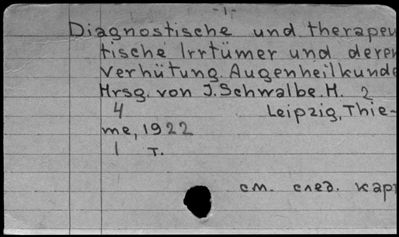 -1-
Diagnostische und therapeu
tische Irrtümer und deren
Verhütung. Augenheilkunde
Hrsg. von J. Schwalbe. H. 2
4 Leipzig, Thie-
me, 1922
1 т.
см. след. карт